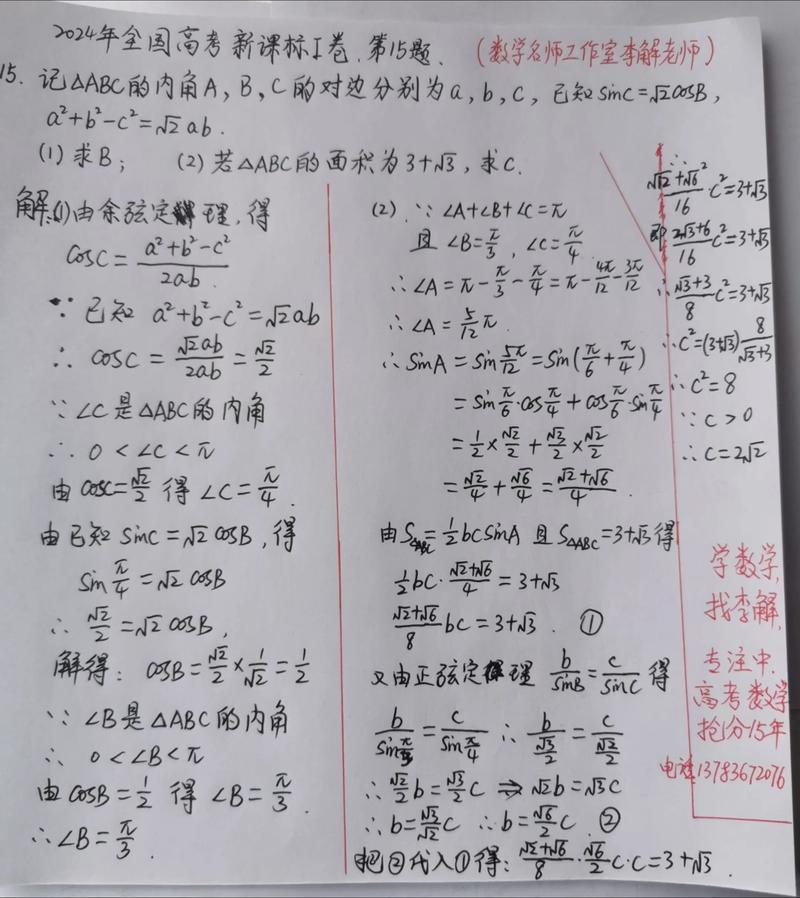 2024年全国高考新课标I卷.第15题.
(数学名师工作室李解老师)
15. 记△ABC的内角A,B,C的对边分别为a,b,c,已知sinC=√2cosB,
a²+b²-c²=√2ab.
(1)求B; (2)若△ABC的面积为3+√3,求C.
解:(1)由余弦定理,得
cosC=(a²+b²-c²)/2ab.
∵已知 a²+b²-c²=√2ab
∴ cosC=√2ab/2ab=√2/2
∵∠C是△ABC的内角
∴ 0<∠C<π
由cosC=√2/2 得∠C=π/4.
由已知sinC=√2cosB,得
sinπ/4=√2cosB
∴ √2/2=√2cosB,
解得: cosB=√2/2×1/√2=1/2
∵ ∠B是△ABC的内角
∴ 0<∠B<π
由cosB=1/2 得 ∠B=π/3.
∴∠B=π/3.
(2) ∵∠A+∠B+∠C=π
且∠B=π/3,∠C=π/4.
∴∠A=π-π/3-π/4=π-4π/12-3π/12
∴∠A=5/12π.
∴sinA=sin5π/12=sin(π/6+π/4)
=sinπ/6·cosπ/4+cosπ/6·sinπ/4
=1/2×√2/2+√3/2×√2/2
=√2/4+√6/4=(√2+√6)/4.
由S△ABC=1/2bcsinA 且S△ABC=3+√3得
1/2bc·(√2+√6)/4=3+√3
(√2+√6)/8bc=3+√3. ①
又由正弦定理 b/sinB=c/sinC 得
b/sinπ/3=c/sinπ/4 ∴ b/(√3/2)=c/(√2/2)
∴√2/2b=√3/2c ⇒ √2b=√3c
∴b=√3/√2c ∴b=√6/2c. ②
把②代入①得: (√2+√6)/8·√6/2c·c=3+√3.
∴
(√12+√6²)/16·c²=3+√3
即(2√3+6)/16c²=3+√3
∴(√3+3)/8c²=3+√3
∴c²=(3+√3)8/(√3+3)
∴c²=8
∵c>0
∴c=2√2
学数学,
找李解,
专注中.
高考数学
抢分15年
电话13783672076